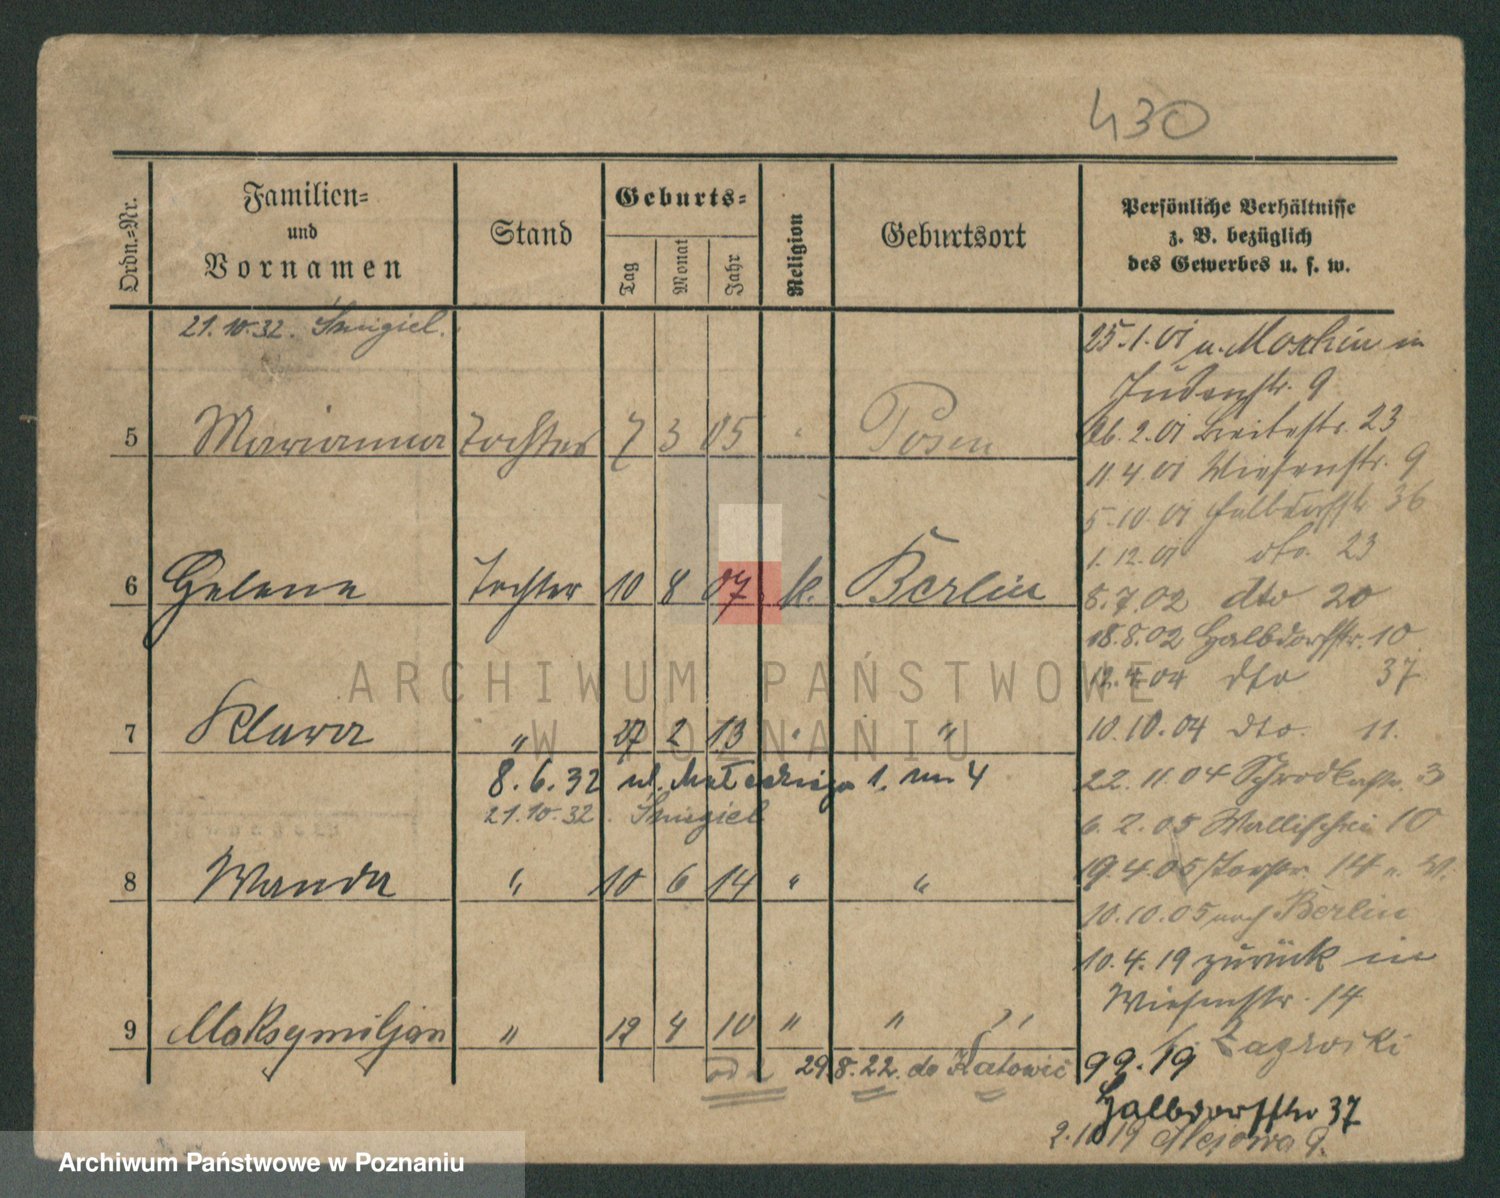 430
Ordn.=Nr.
Familien=
und
Vornamen
Stand
Geburts=
Tag
Monat
Jahr
Religion
Geburtsort
Persönliche Verhältnisse
z. B. bezüglich
des Gewerbes u. s. w.
21.10.32. Śmigiel.
5 Marianna Tochter 7 3 05 " Posen
6 Helene Tochter 10 8 07 k. Berlin
7 Klara " 27 2 13 " "
8.6.32 ul. Małeckiego 1. m 4
21.10.32. Śmigiel
8 Wanda " 10 6 14 " "
9 Maksymiljan " 12 4 10 " " "
29.8.22. do Katowic
25.1.01 in
Judenstr. 9
26.2.01 Breitestr. 23
11.4.01 Wiesenstr. 9
5.10.01 Halbdorfstr 36
1.12.01 dto. 23
8.7.02 dto 20
18.8.02 Halbdorfstr. 10
12.4.04 dto 37
10.10.04 dto. 11.
22.11.04 Schrodkastr. 3
6.2.05 Wallischei 10
19.4.05 14
10.10.05 nach Berlin
10.4.19 zurück in
Wiesenstr. 14
b. Zagrocki
9.9.19
Halbdorfstr 37
2.10.19 Alejowa 9.
ARCHIWUM PAŃSTWOWE
W POZNANIU
Archiwum Państwowe w Poznaniu